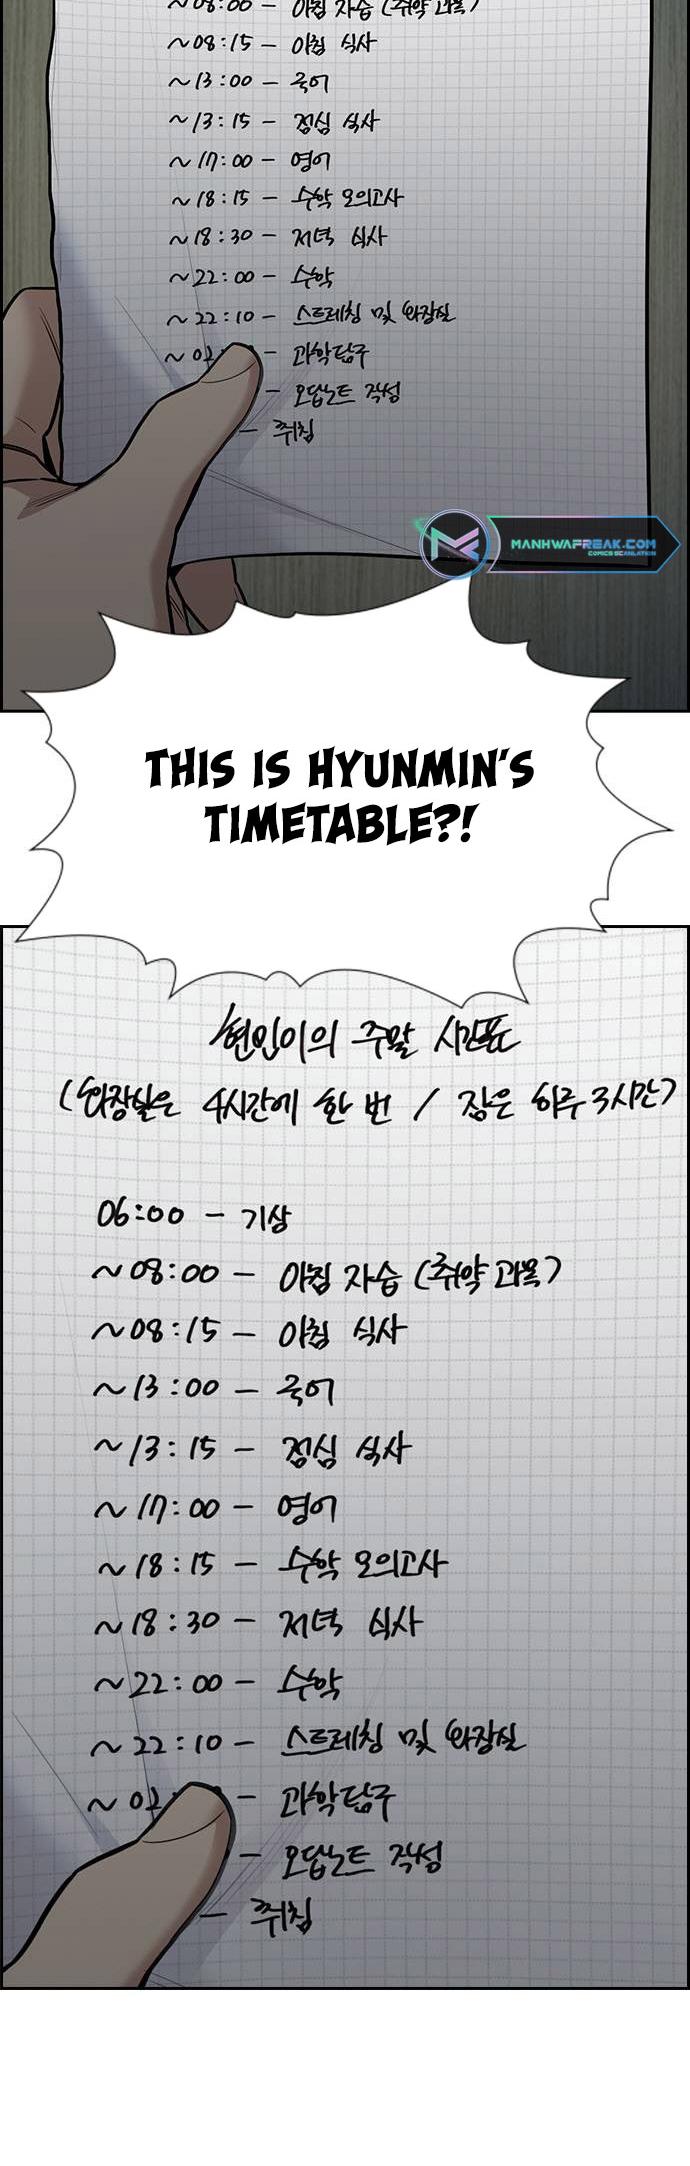 ~08:00 - 아침 자습 (취약 과목)
~08:15 - 아침 식사
~13:00 - 국어
~13:15 - 점심 식사
~17:00 - 영어
~18:15 - 수학 모의고사
~18:30 - 저녁 식사
~22:00 - 수학
~22:10 - 스트레칭 및 화장실
- 과학탐구
- 오답노트 작성
- 취침
MANHWAFREAK.COM
COMICS SCANLATION
THIS IS HYUNMIN'S
TIMETABLE?!
현민이의 주말 시간표
(화장실은 4시간에 한 번 / 잠은 하루 3시간)
06:00 - 기상
~08:00 - 아침 자습 (취약 과목)
~08:15 - 아침 식사
~13:00 - 국어
~13:15 - 점심 식사
~17:00 - 영어
~18:15 - 수학 모의고사
~18:30 - 저녁 식사
~22:00 - 수학
~22:10 - 스트레칭 및 화장실
- 과학탐구
- 오답노트 작성
- 취침